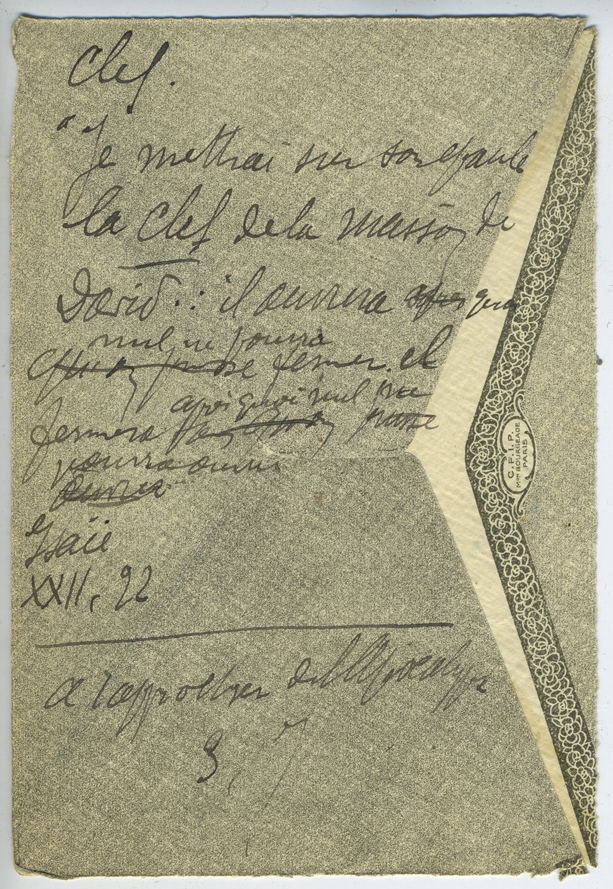 Clef.
"Je mettrai sur son épaule
la clef de la maison de
David : il ouvrira après quoi
nul ne pourra
fermer. et
après quoi nul ne
fermera
pourra ouvrir
ouvrir
Isaïe
XXII, 22
à rapprocher de l'Apocalypse
3, 7
C.P.I.P.
PARIS